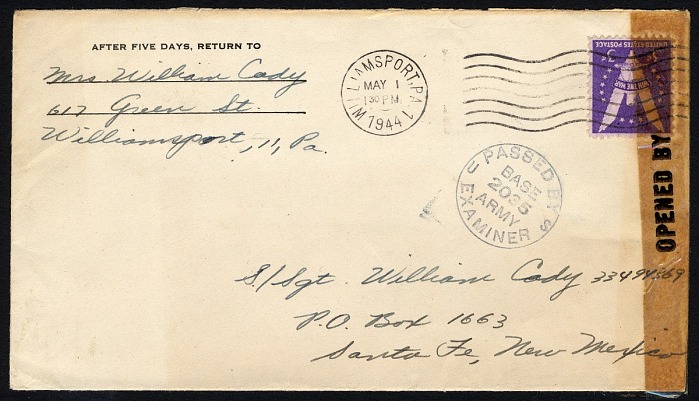 AFTER FIVE DAYS, RETURN TO
Mrs. William Cady
617 Green St.
Williamsport, 11, Pa.
WILLIAMSPORT, PA. 1
MAY 1
1 30 PM
1944
UNITED STATES POSTAGE
WIN THE WAR
3¢
OPENED BY
U PASSED BY S
BASE
2035
ARMY
EXAMINER
S/Sgt. William Cady 33494369
P.O. Box 1663
Santa Fe, New Mexico